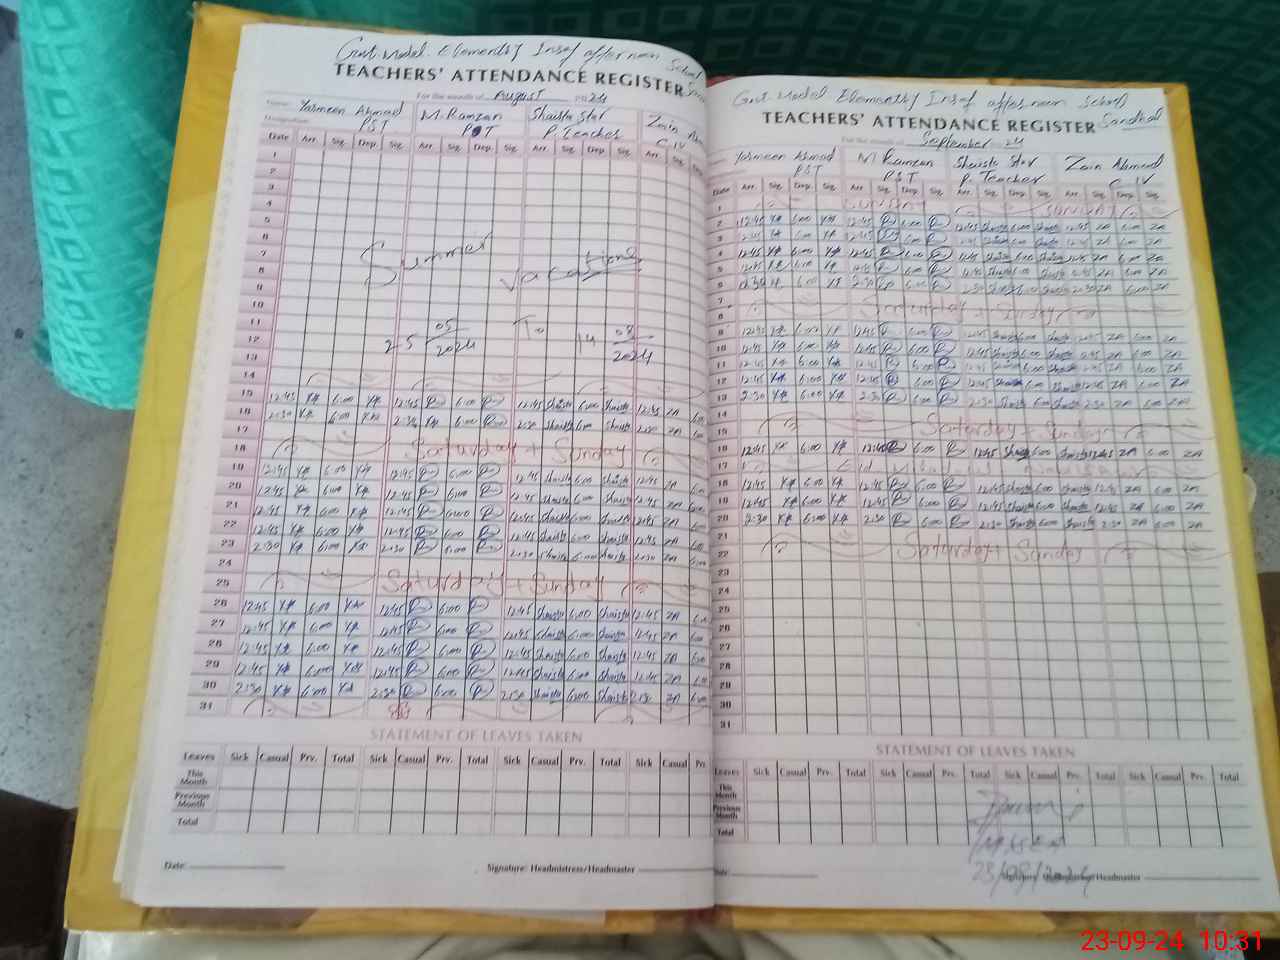 Govt. Model. Elementry Insaf afternoon School
TEACHERS' ATTENDANCE REGISTER
For the month of August 2024
Name: Yasmeen Ahmad M. Ramzan Shaista Star Zain
Designation: PST PST P. Teacher C-IV
Date Arr. Sig. Dep. Sig. Arr. Sig. Dep. Sig. Arr. Sig. Dep. Sig. Arr. Sig.
1
2
3
4
5
6 Summer
7 Vacations
8
9
10
11
12 25 05/2024 To 14 08/2024
13
14
15 12:45 6:00 12:45 6:00 12:45 Shaista 6:00 Shaista 12:45 ZA
16 2:30 6:00 2:30 6:00 2:30 Shaista 6:00 Shaista 2:30 ZA
17
18 Saturday + Sunday
19 12:45 6:00 12:45 6:00 12:45 Shaista 6:00 Shaista 12:45 ZA
20 12:45 6:00 12:45 6:00 12:45 Shaista 6:00 Shaista 12:45 ZA
21 12:45 6:00 12:45 6:00 12:45 Shaista 6:00 Shaista 12:45 ZA
22 12:45 6:00 12:45 6:00 12:45 Shaista 6:00 Shaista 12:45 ZA
23 2:30 6:00 2:30 6:00 2:30 Shaista 6:00 Shaista 2:30 ZA
24
25 Saturday + Sunday
26 12:45 6:00 12:45 6:00 12:45 Shaista 6:00 Shaista 12:45 ZA
27 12:45 6:00 12:45 6:00 12:45 Shaista 6:00 Shaista 12:45 ZA
28 12:45 6:00 12:45 6:00 12:45 Shaista 6:00 Shaista 12:45 ZA
29 12:45 6:00 12:45 6:00 12:45 Shaista 6:00 Shaista 12:45 ZA
30 2:30 6:00 2:30 6:00 2:30 Shaista 6:00 Shaista 2:30 ZA
31
STATEMENT OF LEAVES TAKEN
Leaves Sick Casual Prv. Total Sick Casual Prv. Total Sick Casual Prv. Total Sick Casual
This Month
Previous Month
Total
Date: Signature: Headmistress/Headmaster
Govt Model Elementry Insaf afternoon School
TEACHERS' ATTENDANCE REGISTER Sandhal
For the month of September 24
Yasmeen Ahmad M Ramzan Shaista Star Zain Ahmad
PST PST P. Teacher C-IV
Date Arr. Sig. Dep. Sig. Arr. Sig. Dep. Sig. Arr. Sig. Dep. Sig. Arr. Sig. Dep. Sig.
1 Sunday
2 12:45 6:00 12:45 6:00 12:45 Shaista 6:00 Shaista 12:45 ZA 6:00 ZA
3 12:45 6:00 12:45 6:00 12:45 Shaista 6:00 Shaista 12:45 ZA 6:00 ZA
4 12:45 6:00 12:45 6:00 12:45 Shaista 6:00 Shaista 12:45 ZA 6:00 ZA
5 12:45 6:00 12:45 6:00 12:45 Shaista 6:00 Shaista 12:45 ZA 6:00 ZA
6 2:30 6:00 2:30 6:00 2:30 Shaista 6:00 Shaista 2:30 ZA 6:00 ZA
7
8 Saturday + Sunday
9 12:45 6:00 12:45 6:00 12:45 Shaista 6:00 Shaista 12:45 ZA 6:00 ZA
10 12:45 6:00 12:45 6:00 12:45 Shaista 6:00 Shaista 12:45 ZA 6:00 ZA
11 12:45 6:00 12:45 6:00 12:45 Shaista 6:00 Shaista 12:45 ZA 6:00 ZA
12 12:45 6:00 12:45 6:00 12:45 Shaista 6:00 Shaista 12:45 ZA 6:00 ZA
13 2:30 6:00 2:30 6:00 2:30 Shaista 6:00 Shaista 2:30 ZA 6:00 ZA
14
15 Saturday + Sunday
16 12:45 6:00 12:45 6:00 12:45 Shaista 6:00 Shaista 12:45 ZA 6:00 ZA
17 Eid
18 12:45 6:00 12:45 6:00 12:45 Shaista 6:00 Shaista 12:45 ZA 6:00 ZA
19 12:45 6:00 12:45 6:00 12:45 Shaista 6:00 Shaista 12:45 ZA 6:00 ZA
20 2:30 6:00 2:30 6:00 2:30 Shaista 6:00 Shaista 2:30 ZA 6:00 ZA
21
22 Saturday + Sunday
23
24
25
26
27
28
29
30
31
STATEMENT OF LEAVES TAKEN
Leaves Sick Casual Prv. Total Sick Casual Prv. Total Sick Casual Prv. Total Sick Casual Prv. Total
This Month
Previous Month
Total
23/09/2024
Date: Headmaster
23-09-24 10:31